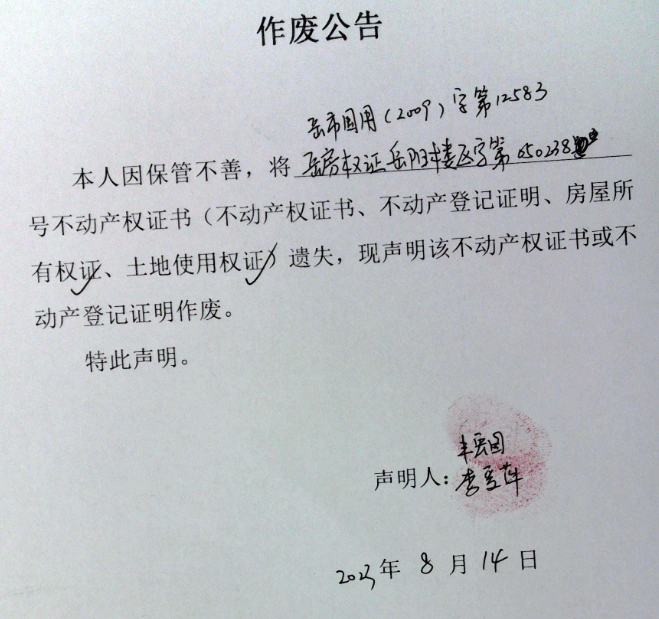 作废公告
岳市国用(2009)字第12583
本人因保管不善,将 岳房权证岳阳楼区字第650238
号不动产权证书(不动产权证书、不动产登记证明、房屋所
有权证、土地使用权证)遗失,现声明该不动产权证书或不
动产登记证明作废。
特此声明。
声明人:
2023年 8 月 14 日